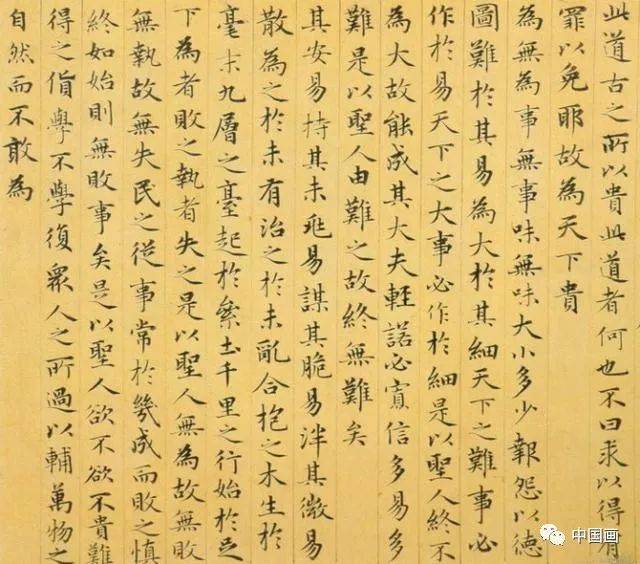 此道古之所以貴此道者何也不曰求以得有
罪以免耶故為天下貴
為無為事無事味無味大小多少報怨以德
圖難於其易為大於其細天下之難事必
作於易天下之大事必作於細是以聖人終不
為大故能成其大夫輕諾必寡信多易多
難是以聖人由難之故終無難矣
其安易持其未兆易謀其脆易泮其微易
散為之於未有治之於未亂合抱之木生於
毫末九層之臺起於絫土千里之行始於足
下為者敗之執者失之是以聖人無為故無敗
無執故無失民之從事常於幾成而敗之慎
終如始則無敗事矣是以聖人欲不欲不貴難
得之貨學不學復眾人之所過以輔萬物之
自然而不敢為
中国画